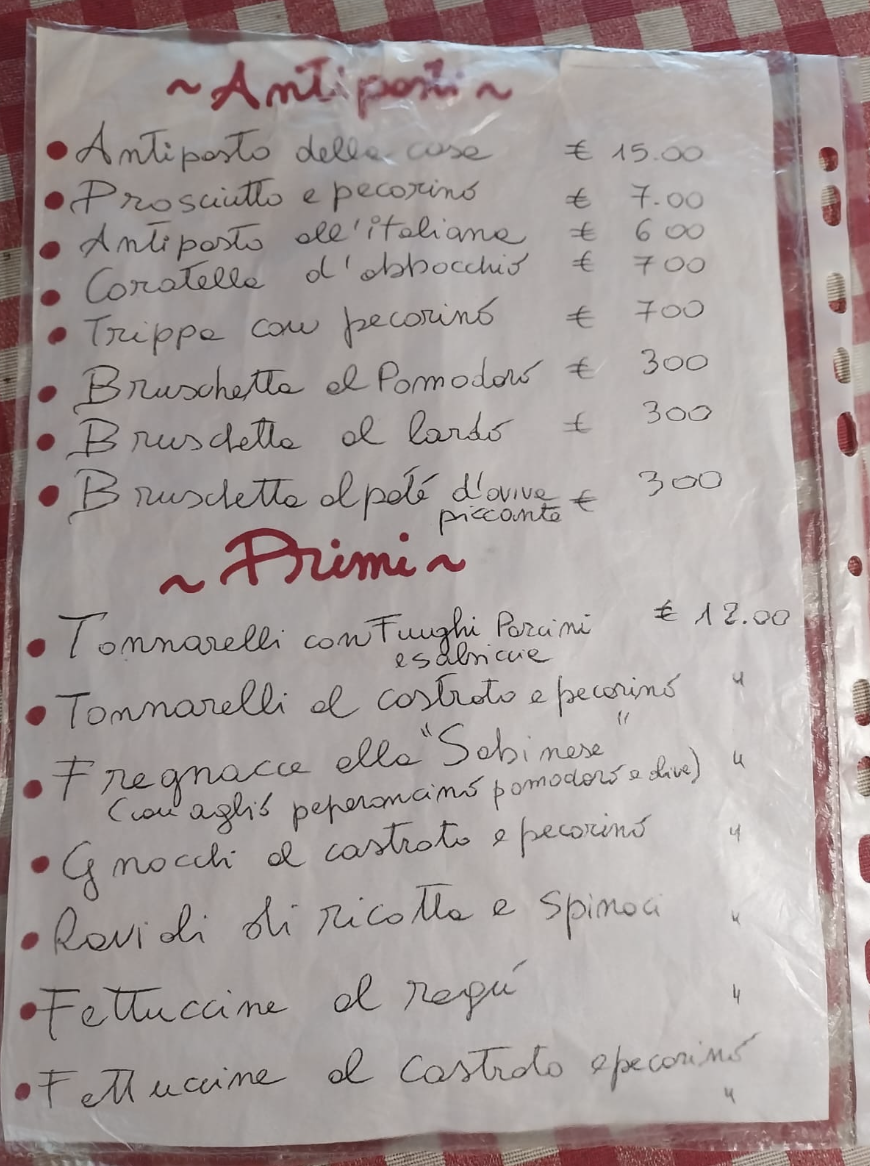 ~ Antipasti ~
• Antipasto della casa € 15.00
• Prosciutto e pecorino € 7.00
• Antipasto all'italiana € 6 00
• Coratella d'abbacchio € 700
• Trippa con pecorino € 700
• Bruschetta al Pomodoro € 300
• Bruschetta al lardo € 300
• Bruschetta al paté d'oviva € 300
piccante
~ Primi ~
• Tonnarelli con Funghi Porcini € 12.00
e salsicce
• Tonnarelli al castrato e pecorino "
• Fregnacce alla "Sabinese" "
(con aglio peperoncino pomodoro e olive)
• Gnocchi al castrato e pecorino "
• Ravioli di ricotta e spinaci "
• Fettuccine al ragú "
• Fettuccine al castrato e pecorino "